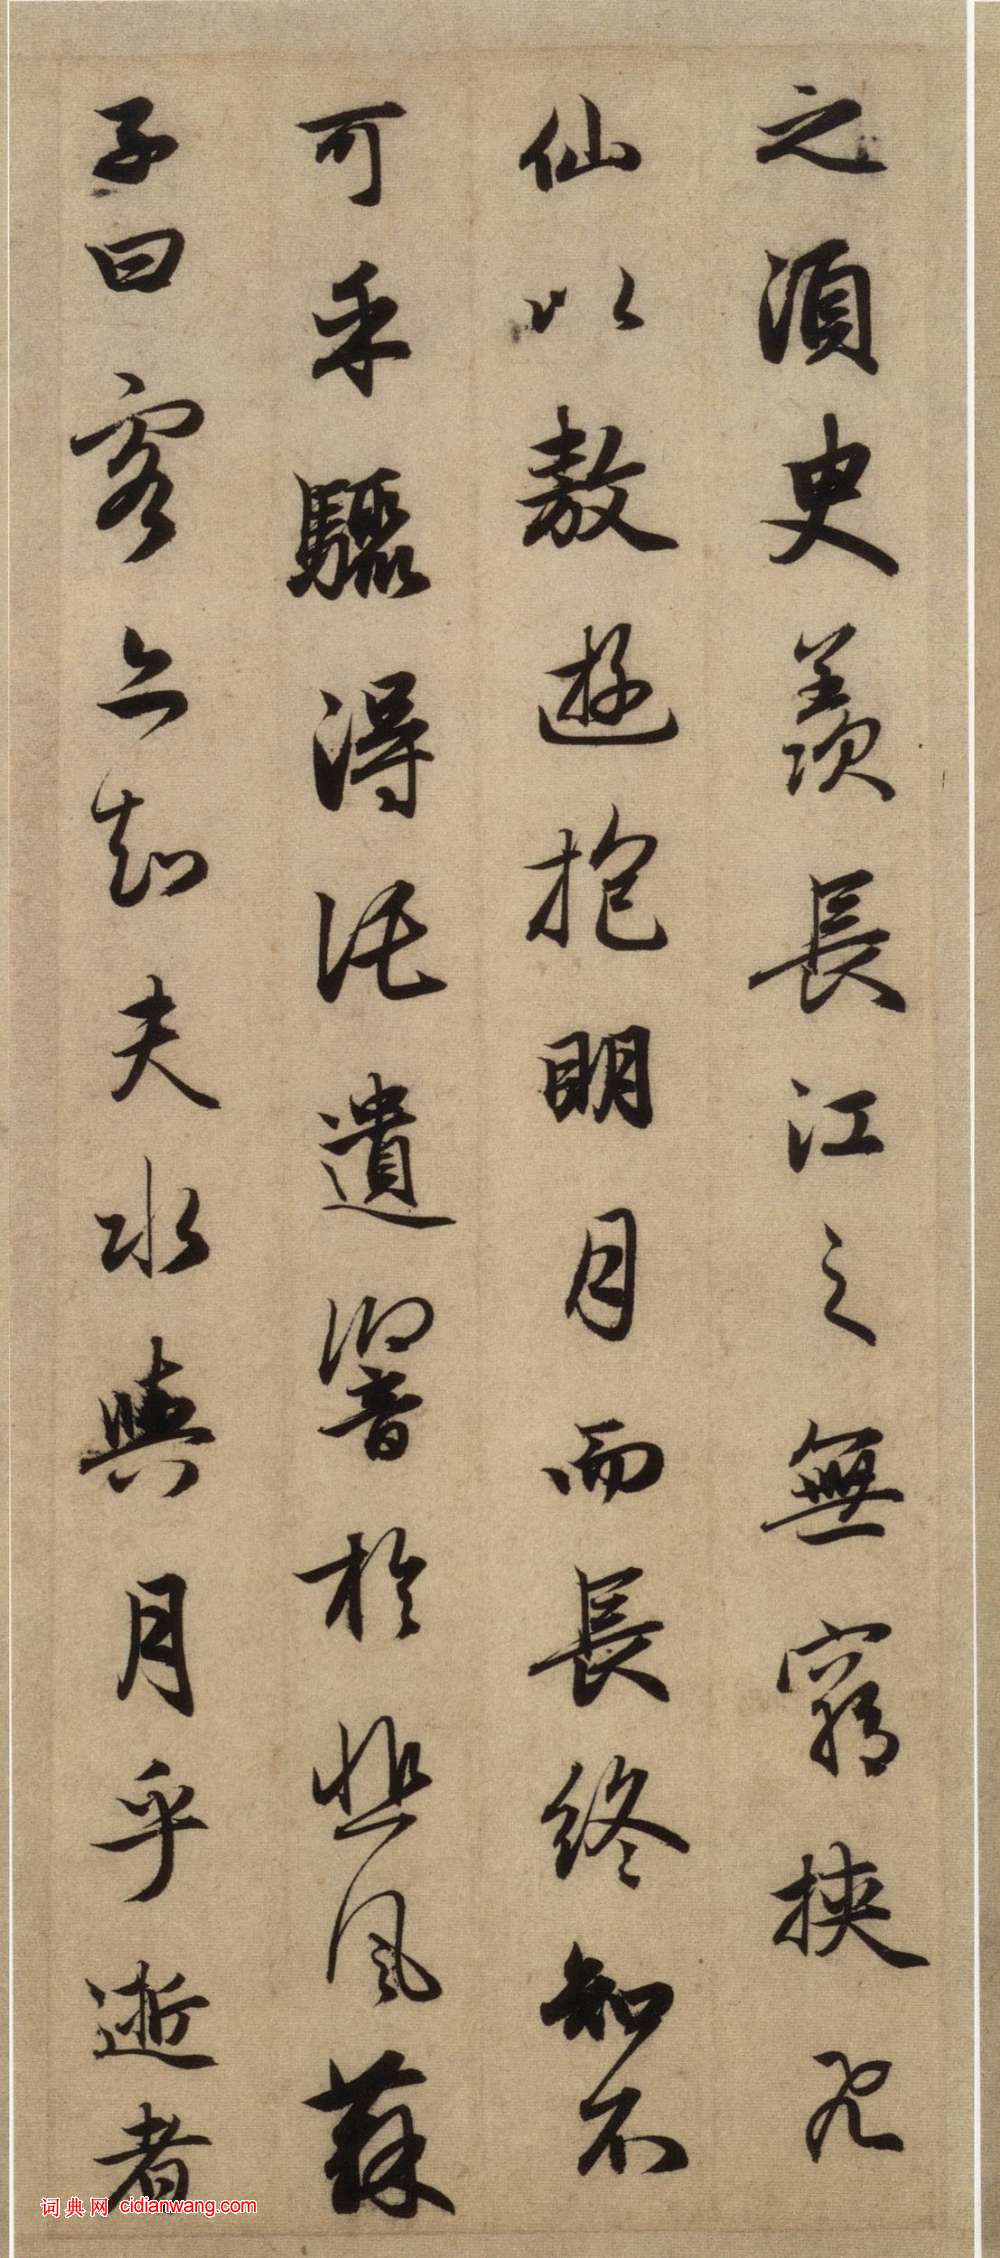 之須臾羨長江之無窮挾飛
仙以敖遊抱明月而長終知不
可乎驟得托遺響於悲風蘇
子曰客亦知夫水與月乎逝者
词典网 cidianwang.com